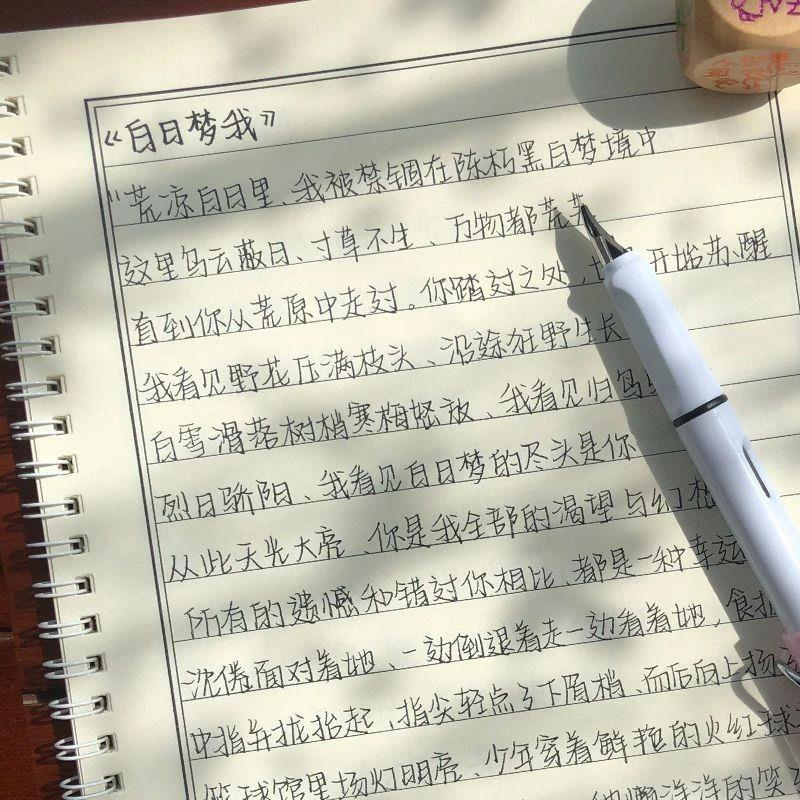 《白日梦我》
"荒凉白日里、我被禁锢在陈朽黑白梦境中
这里乌云蔽日、寸草不生、万物都荒芜
直到你从荒原中走过。你踏过之处,开始苏醒
我看见野花压满枝头、沿途狂野生长
白雪滑落树梢寒梅怒放、我看见归鸟
烈日骄阳、我看见白日梦的尽头是你
从此天光大亮、你是我全部的渴望与幻想
所有的遗憾和错过你相比、都是一种幸运
沈倦面对着她、一边倒退着走一边看着她,食指
中指并拢抬起、指尖轻点了下眉梢、而后向上扬
篮球馆里场灯明亮、少年穿着鲜艳的火红球
懒洋洋的笑